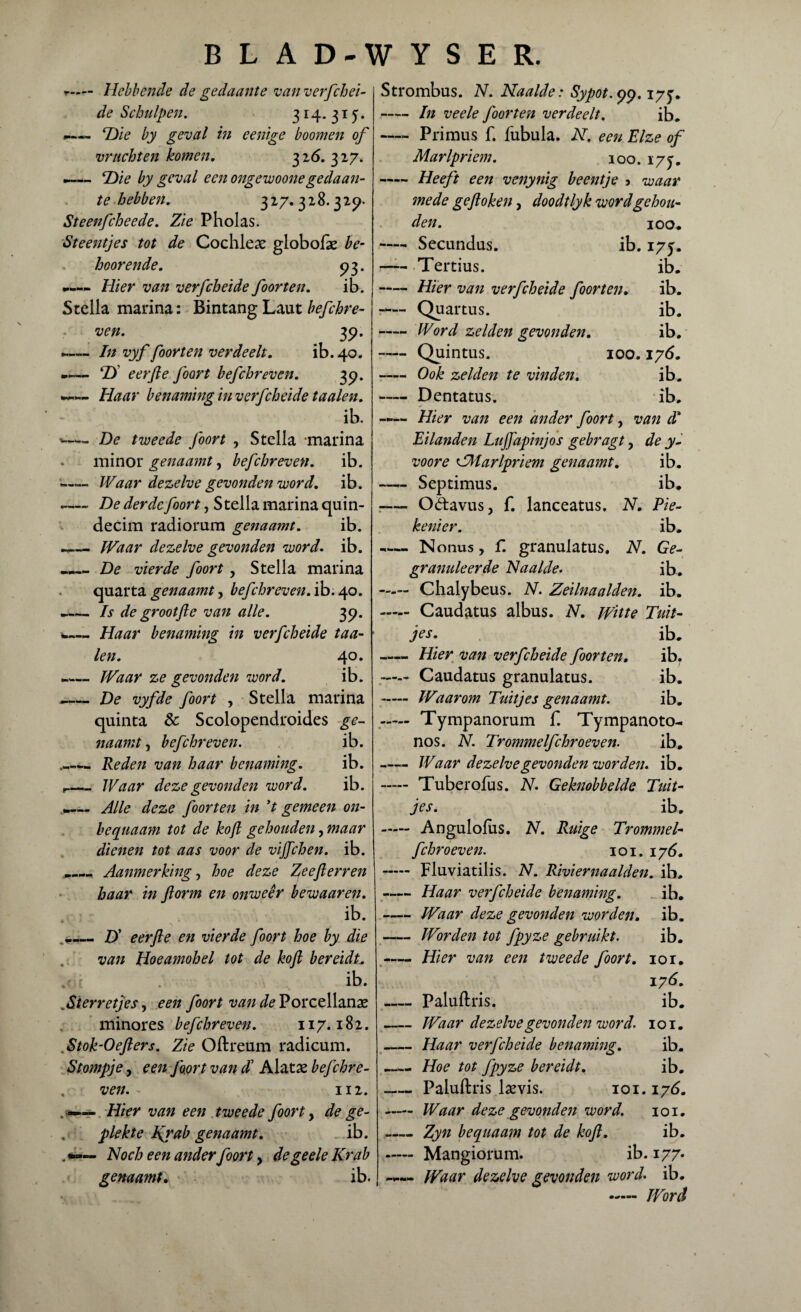 BLAD-WYSER.
—— Hebbende de gedaante van verſchei-
de Schulpen. 314. 315.
—— Die by geval in eenige boomen of
vruchten komen. 326. 327.
—— Die by geval een ongewoone gedaan-
te hebben. 327. 328. 329.
Steenſcheede. Zie Pholas.
Steentjes tot de Cochleæ globoſæ be-
hoorende. 93.
—— Hier van verſcheide ſoorten. ib.
Stella marina: Bintang Laut beſchre-
ven. 39.
—— In vyf ſoorten verdeelt. ib. 40.
—— D' eerſte ſoort beſchreven. 39.
—— Haar benaming in verſcheide taalen.
ib.
—— De tweede ſoort, Stella marina
minor genaamt, beſchreven. ib.
—— Waar dezelve gevonden word. ib.
—— De derde ſoort, Stella marina quin-
decim radiorum genaamt. ib.
—— Waar dezelve gevonden word. ib.
—— De vierde ſoort, Stella marina
quarta genaamt, beſchreven. ib. 40.
—— Is de grootſte van alle. 39.
—— Haar benaming in verſcheide taa-
len. 40.
—— Waar ze gevonden word. ib.
—— De vyfde ſoort, Stella marina
quinta & Scolopendroides ge-
naamt, beſchreven. ib.
—— Reden van haar benaming. ib.
—— Waar deze gevonden word. ib.
—— Alle deze ſoorten in 't gemeen on-
bequaam tot de koſt gehouden, maar
dienen tot aas voor de viſſchen. ib.
—— Aanmerking, hoe deze Zeeſterren
haar in ſtorm en onweêr bewaaren.
ib.
—— D' eerſte en vierde ſoort hoe by die
van Hoeamohel tot de koſt bereidt.
ib.
Sterretjes, een ſoort van de Porcellanæ
minores beſchreven. 117. 182.
Stok-Oeſters. Zie Oſtreum radicum.
Stompje, een ſoort van d' Alatæ beſchre-
ven. 112.
—— Hier van een tweede ſoort, de ge-
plekte Krab genaamt. ib.
—— Noch een ander ſoort, de geele Krab
genaamt. ib.
Strombus. N. Naalde: Sypot. 99. 175.
—— In veele ſoorten verdeelt. ib.
—— Primus ſ. ſubula. N. een Elze of
Marlpriem. 100. 175.
—— Heeft een venynig beentje, waar
mede geſtoken, doodtlyk word gehou-
den. 100.
—— Secundus. ib. 175.
—— Tertius. ib.
—— Hier van verſcheide ſoorten. ib.
—— Quartus. ib.
—— Word zelden gevonden. ib.
—— Quintus. 100. 176.
—— Ook zelden te vinden. ib.
—— Dentatus. ib.
—— Hier van een ander ſoort, van d'
Eilanden Luſſapinjos gebragt, de y-
voore Marlpriem genaamt. ib.
—— Septimus. ib.
—— Octavus, ſ. lanceatus. N. Pie-
kenier. ib.
—— Nonus, ſ. granulatus. N. Ge-
granuleerde Naalde. ib.
—— Chalybeus. N. Zeilnaalden. ib.
—— Caudatus albus. N. Witte Tuit-
jes. ib.
—— Hier van verſcheide ſoorten. ib.
—— Caudatus granulatus. ib.
—— Waarom Tuitjes genaamt. ib.
—— Tympanorum ſ. Tympanoto-
nos. N. Trommelſchroeven. ib.
—— Waar dezelve gevonden worden. ib.
—— Tuberoſus. N. Geknobbelde Tuit-
jes. ib.
—— Anguloſus. N. Ruige Trommel-
ſchroeven. 101. 176.
—— Fluviatilis. N. Riviernaalden. ib.
—— Haar verſcheide benaming. ib.
—— Waar deze gevonden worden. ib.
—— Worden tot ſpyze gebruikt. ib.
—— Hier van een tweede ſoort. 101.
176.
—— Paluſtris. ib.
—— Waar dezelve gevonden word. 101.
—— Haar verſcheide benaming. ib.
—— Hoe tot ſpyze bereidt. ib.
—— Paluſtris lævis. 101. 176.
—— Waar deze gevonden word. 101.
—— Zyn bequaam tot de koſt. ib.
—— Mangiorum. ib. 177.
—— Waar dezelve gevonden word. ib.
—— Word